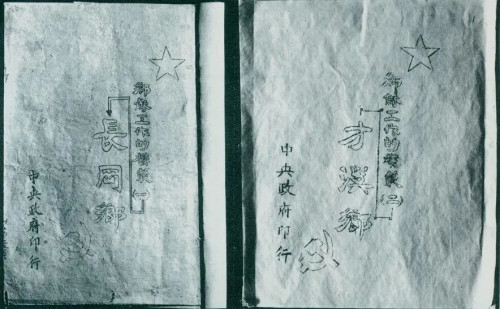 鄉蘇工作的模範(一)
長岡鄉
中央政府印行
鄉蘇工作的模範(二)
才溪鄉
中央政府印行